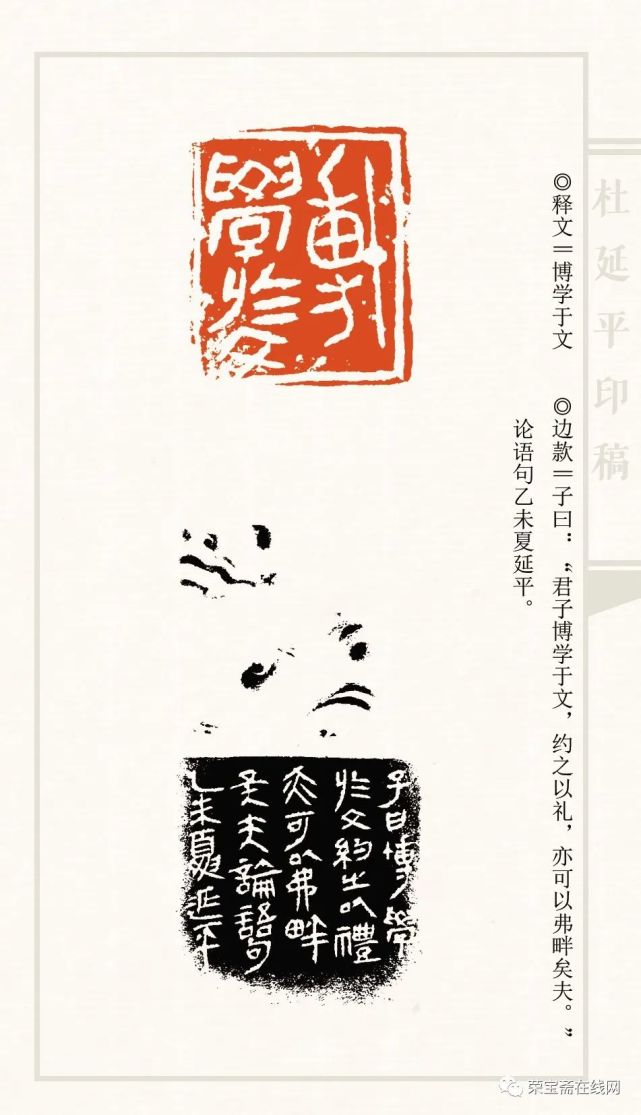 杜延平印稿
◎释文＝博学于文
◎边款＝子曰：“君子博学于文，约之以礼，亦可以弗畔矣夫。”
论语句乙未夏延平。
博
学于文
子曰博学
于文约之以禮
亦可以弗畔
矣夫論語句
乙未夏延平
荣宝斋在线网